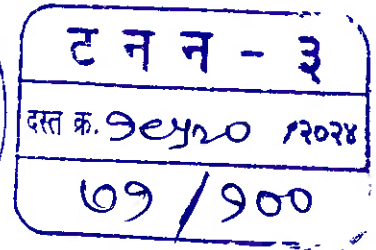 ट न न - ३
दस्त क्र. १९५२० /२०२४
७१/१००